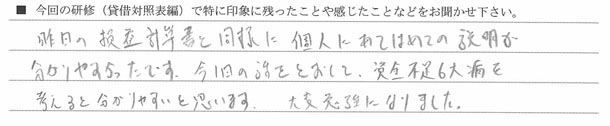 ■ 今回の研修（貸借対照表編）で特に印象に残ったことや感じたことなどをお聞かせ下さい。
昨日の損益計算書と同様に個人にあてはめての説明が
分かりやすかったです。今回の話をとおして、資金不足6大病を
考えると分かりやすいと思います。 大変勉強になりました。